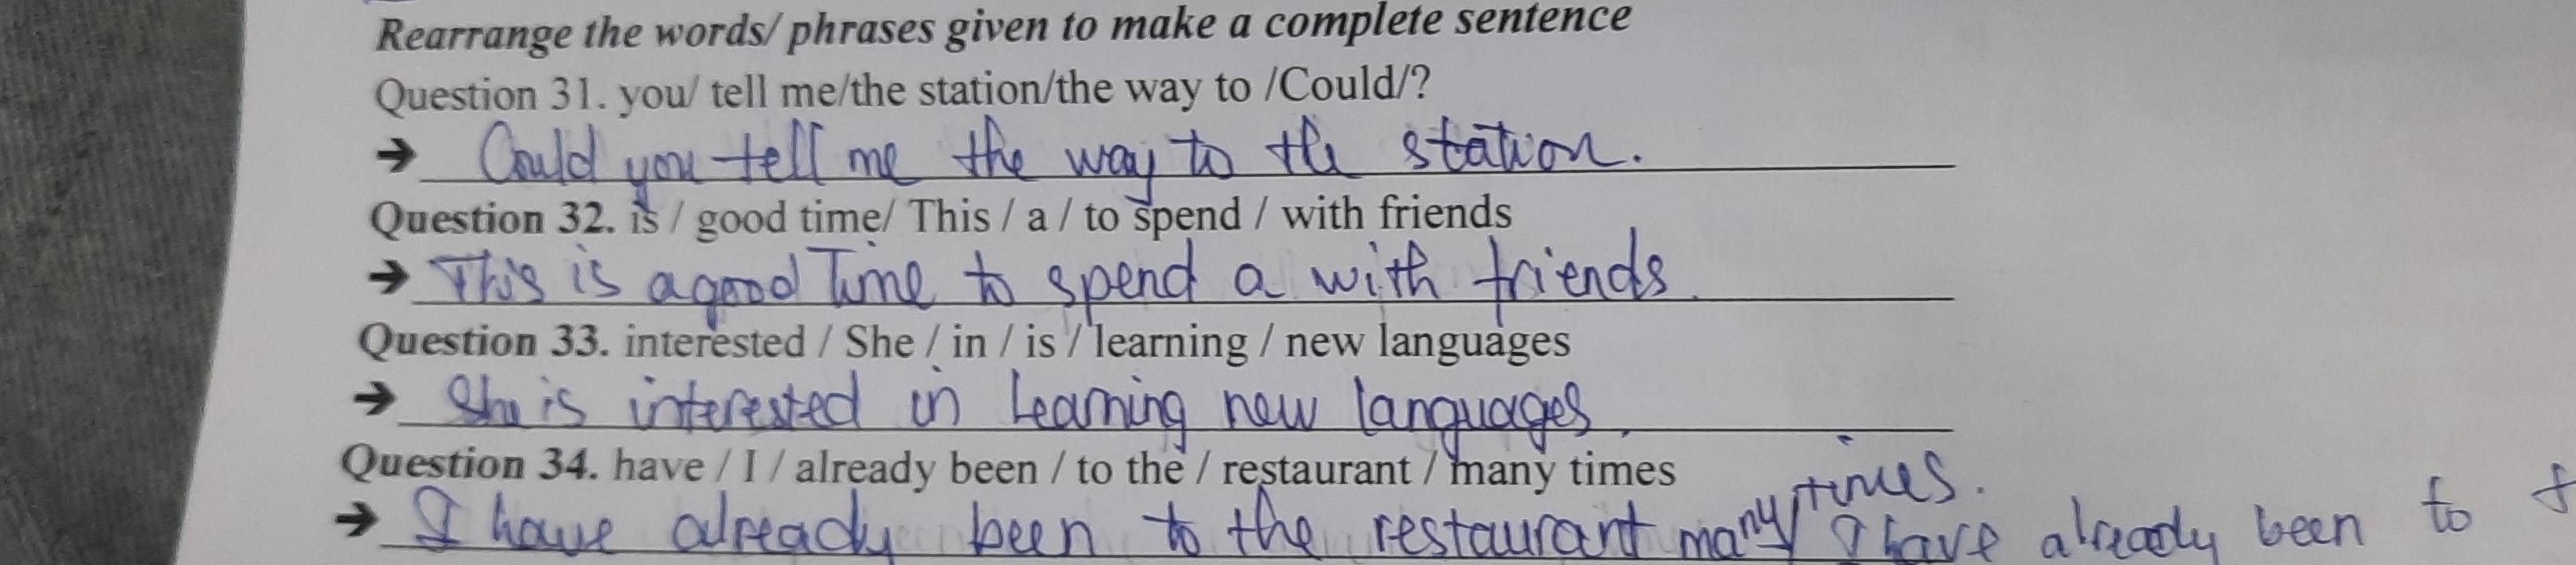 Rearrange the words/ phrases given to make a complete sentence
Question 31. you/ tell me/the station/the way to /Could/?
→ Could you tell me the way to the station.
Question 32. is / good time/ This / a / to spend / with friends
→ This is a good Time to spend a with friends.
Question 33. interested / She / in / is / learning / new languages
→ She is interested in learning new languages.
Question 34. have / I / already been / to the / restaurant / many times
→ I have already been to the restaurant many times. I have already been to